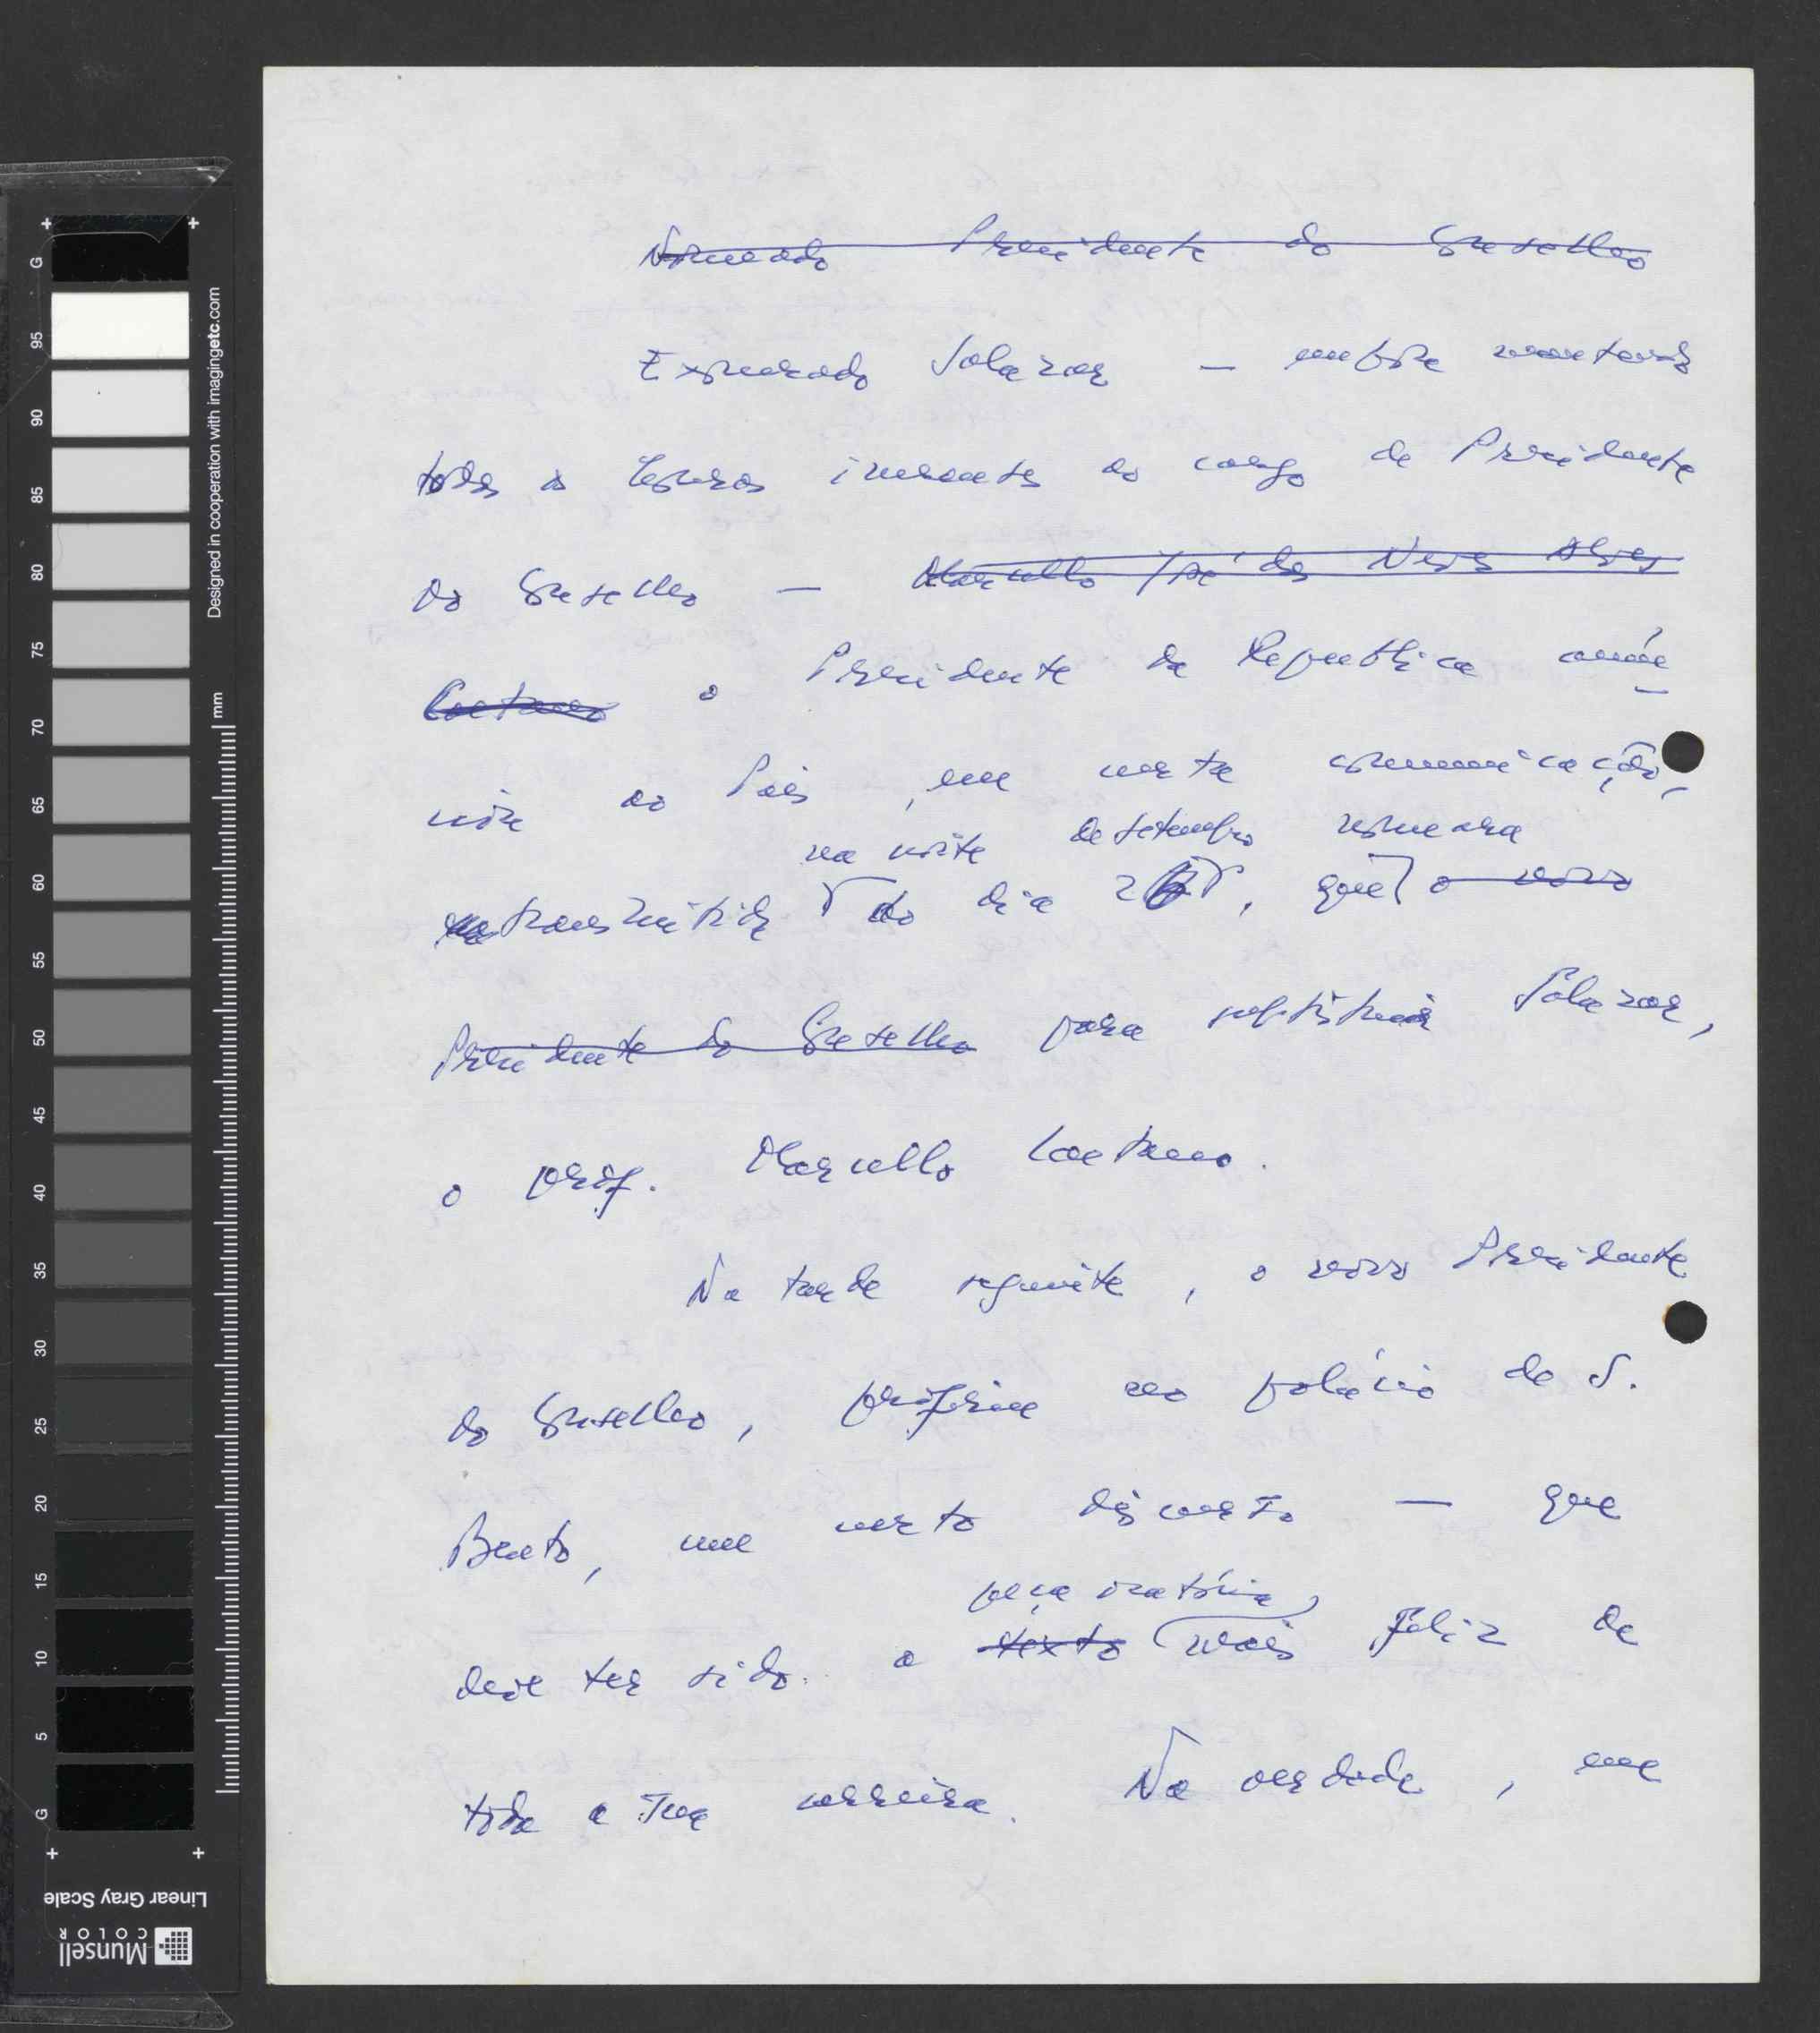 Nomeado Presidente do Conselho
Exonerado Salazar — embora mantendo
todas as honras inerentes ao cargo de Presidente
do Conselho — Marcello José das Neves Alves
Caetano o Presidente da República anún-
cia ao País, em curta comunicação,
na noite de setembro nomeara
transmitida do dia 26, que o novo
Presidente do Conselho para substituir Salazar,
o prof. Marcello Caetano.
Na tarde seguinte, o novo Presidente
do Conselho, proferia no palácio de S.
Bento, um curto discurso — que
peça oratória
deve ter sido a texto mais feliz de
toda a sua carreira. Na verdade, em
G 95 90 85 80 75 70 65 60 55 50 45 40 35 30 25 20 15 10 5 G
Designed in cooperation with imagingetc.com
mm
Linear Gray Scale
Munsell
COLOR